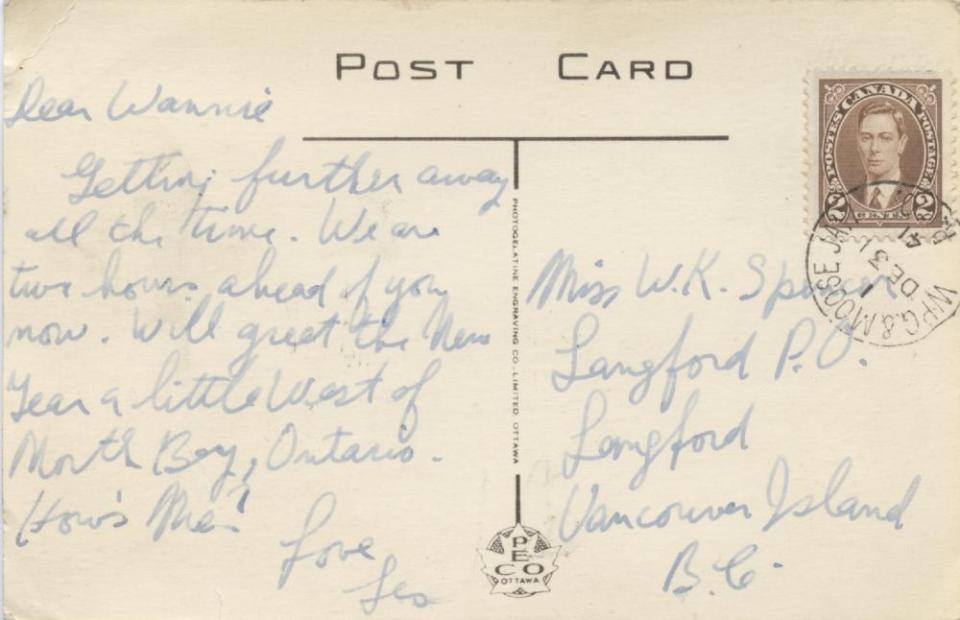 POST CARD
Dear Wannie
Getting further away
all the time. We are
two hours ahead of you
now. Will great the New
Year a little West of
North Bay, Ontario.
How's Me?
Love
Les
PHOTOGELATINE ENGRAVING CO., LIMITED, OTTAWA
PECO
OTTAWA
POSTES CANADA POSTAGE
2 CENTS 2
WPG. & MOOSE JAW
DE 31
41
Miss W.K.
Langford P.O.
Langford
Vancouver Island
B.C.